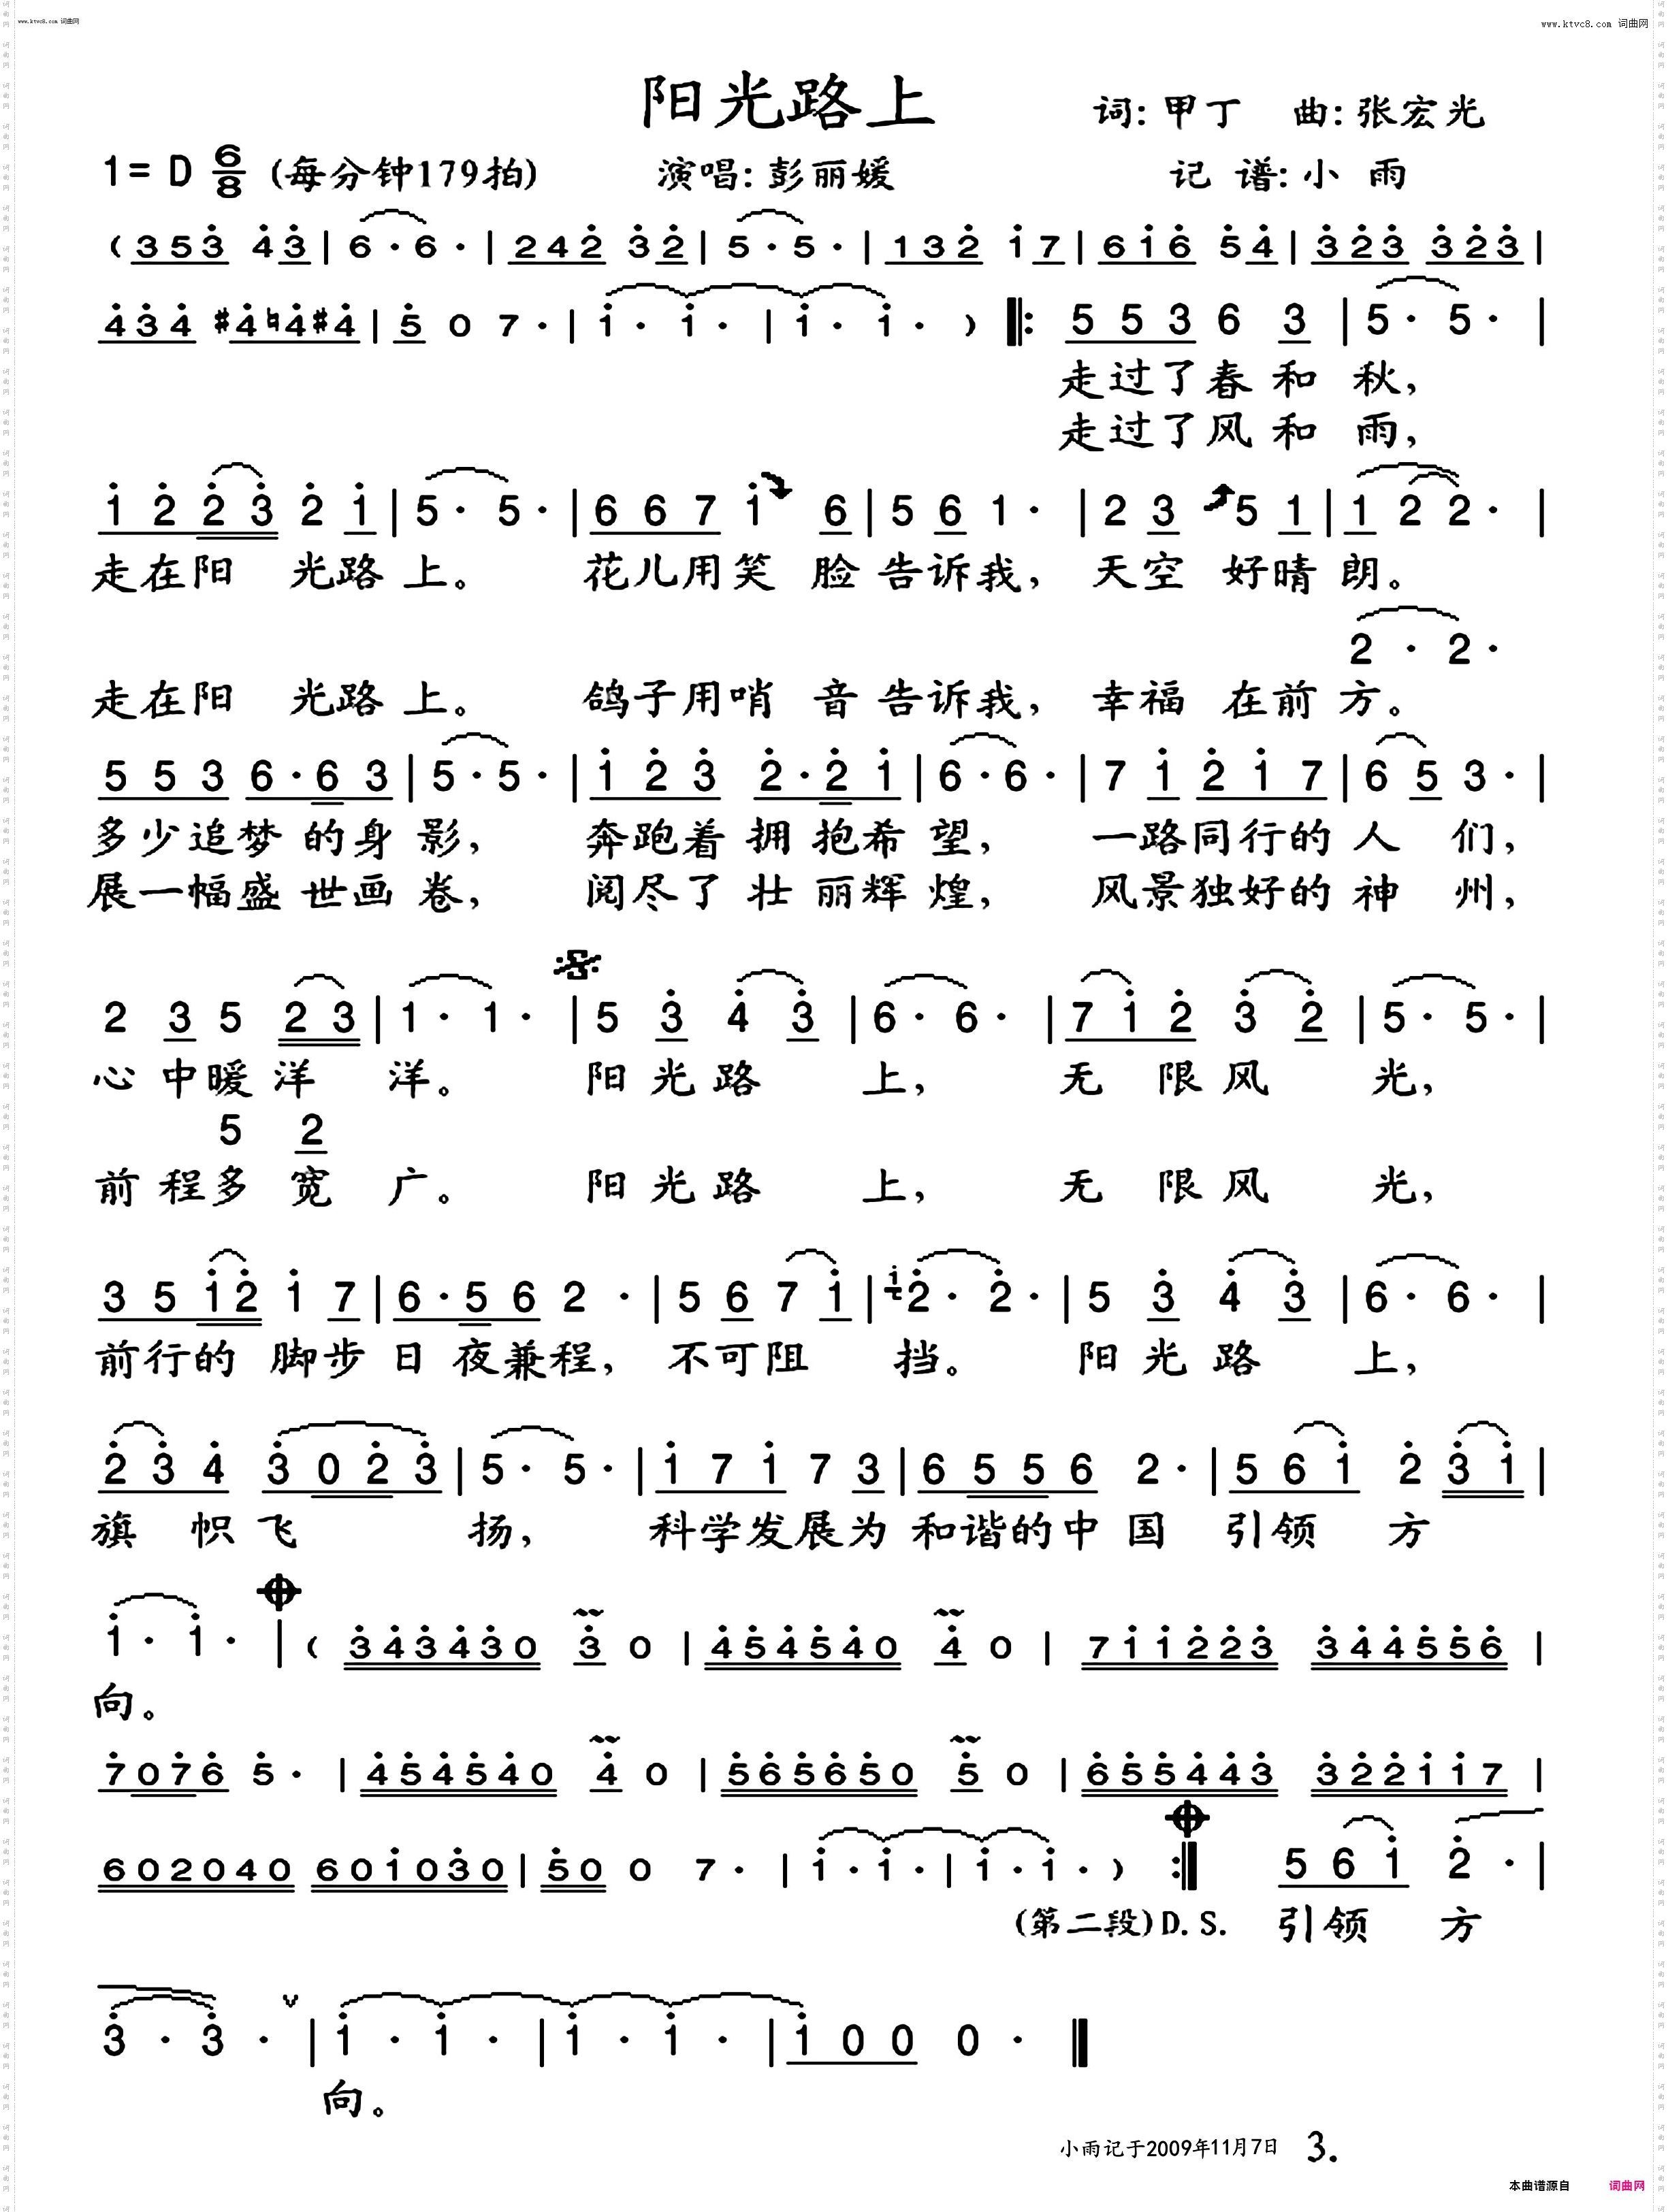 www.ktvc8.com 词曲网
www.ktvc8.com 词曲网
阳光路上
词: 甲丁 曲: 张宏光
1= D 6/8 (每分钟179拍) 演唱: 彭丽媛 记 谱: 小 雨
( 353 43 | 6·6· | 242 32 | 5·5· | 132 17 | 616 54 | 323 323 |
434 #4♮4#4 | 5 0 7· | 1·1· | 1·1· ) ‖: 5 5 3 6 3 | 5· 5· |
走过了春和 秋,
走过了风和 雨,
1 2 2 3 2 1 | 5· 5· | 6 6 7 1 6 | 5 6 1· | 2 3 5 1 | 1 2 2· |
走在阳 光路上。 花儿用笑 脸告诉我, 天空 好晴朗。
2 · 2·
走在阳 光路上。 鸽子用哨 音告诉我, 幸福 在前方。
5 5 3 6·6 3 | 5·5· | 1 2 3 2·2 1 | 6·6· | 7 1 2 1 7 | 6 5 3· |
多少追梦的身影, 奔跑着拥抱希望, 一路同行的人 们,
展一幅盛世画卷, 阅尽了壮丽辉煌, 风景独好的神 州,
2 3 5 2 3 | 1· 1· | 5 3 4 3 | 6· 6· | 7 1 2 3 2 | 5· 5· |
心中暖洋 洋。 阳光路 上, 无 限风 光,
5 2
前程多 宽 广。 阳光路 上, 无 限风 光,
3 5 1 2 1 7 | 6·5 6 2 · | 5 6 7 1 | 1 2· 2· | 5 3 4 3 | 6· 6· |
前行的 脚步日夜兼程, 不可阻 挡。 阳光路 上,
2 3 4 3 0 2 3 | 5· 5· | 1 7 1 7 3 | 6 5 5 6 2· | 5 6 1 2 3 1 |
旗 帜飞 扬, 科学发展为和谐的中国 引领 方
1· 1· | ( 343430 3 0 | 454540 4 0 | 711223 344556 |
向。
7076 5· | 454540 4 0 | 565650 5 0 | 655443 322117 |
602040 601030 | 50 0 7· | 1·1· | 1·1· ) :‖ 5 6 1 2 · |
(第二段) D.S. 引领 方
3 · 3 · ∨ | 1 · 1 · | 1 · 1 · | 1 0 0 0 · ‖
向。
小雨记于2009年11月7日 3.
本曲谱源自 词曲网